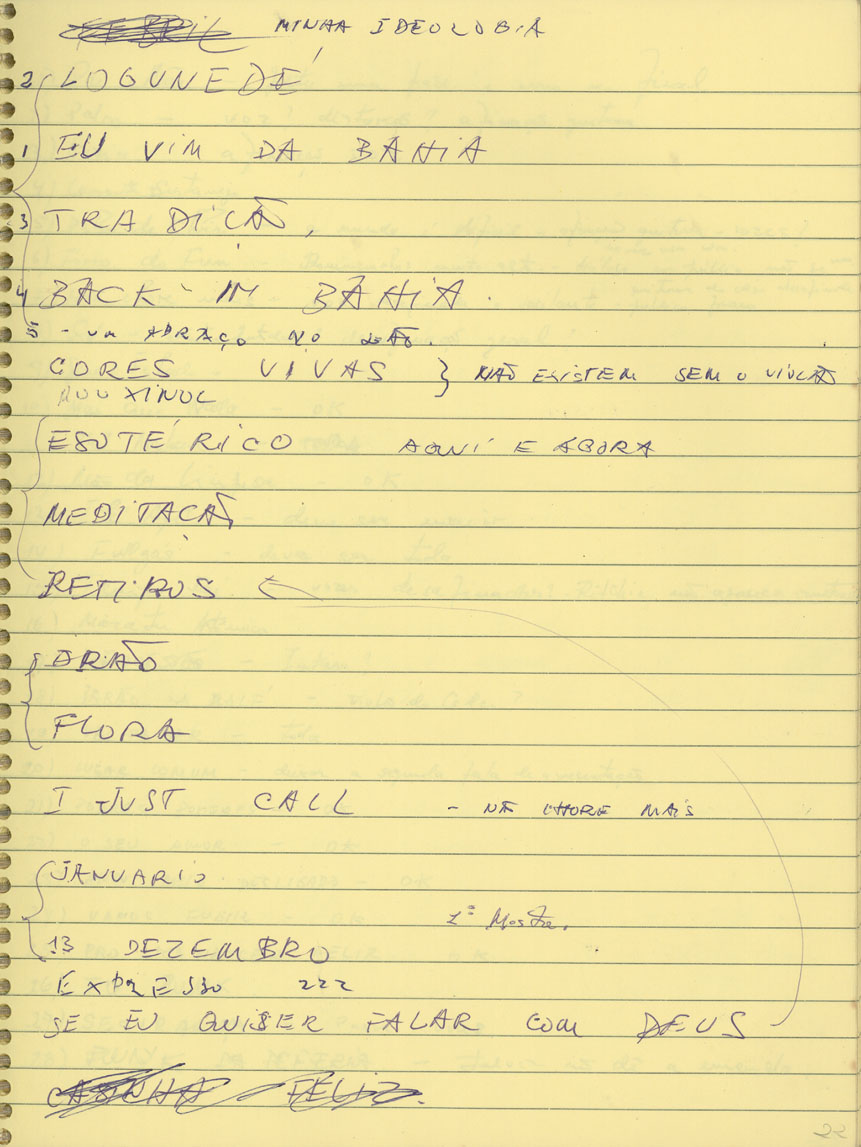 MINHA IDEOLOGIA
2 LOGUNEDÉ
1 EU VIM DA BAHIA
3 TRADIÇÃO,
4 BACK-IN BAHIA.
5 - UM ABRAÇO NO JOÃO.
CORES VIVAS } NÃO EXISTEM SEM O VIOLÃO
ROUXINOL
ESOTÉRICO AQUI E AGORA
MEDITAÇÃO
RETIROS
DRÃO
FLORA
I JUST CALL - NÃ CHORE MAIS
JANUARIO
1ª Mostra.
13 DEZEMBRO
EXPRESSO 222
SE EU QUISER FALAR COM DEUS
CASINHA FELIZ.
22